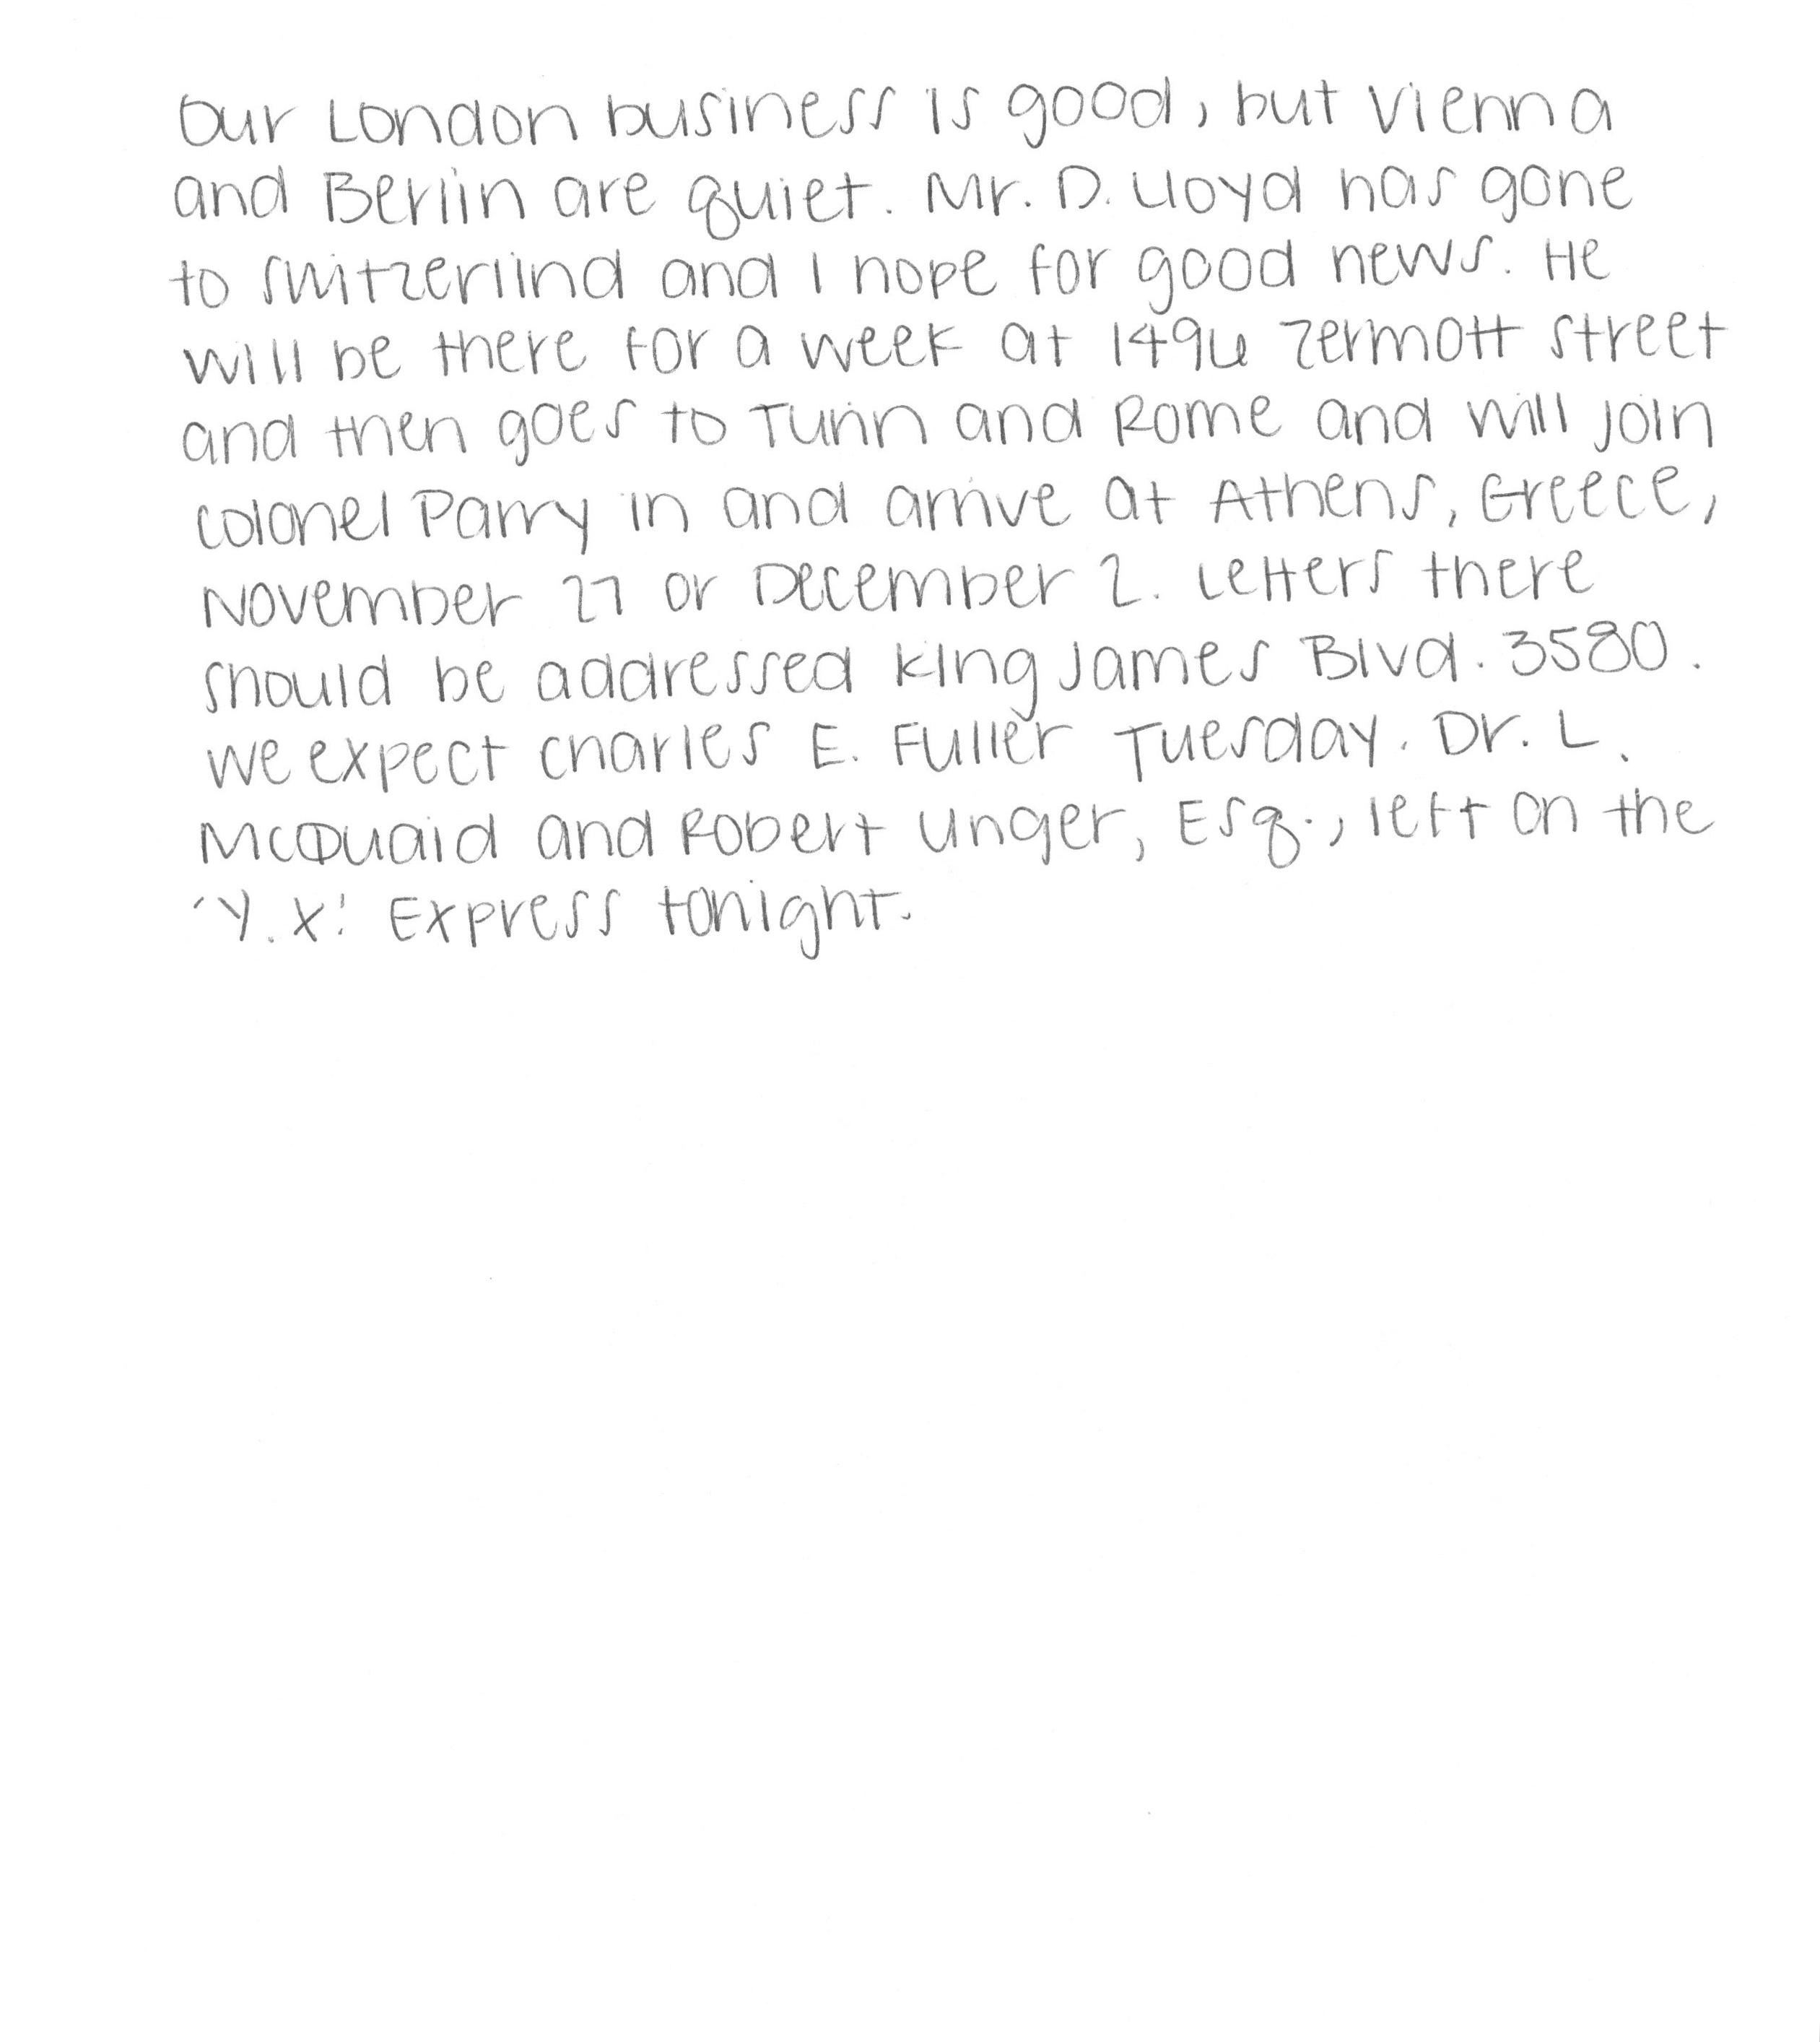 Our London business is good, but Vienna
and Berlin are quiet. Mr. D. Lloyd has gone
to Switzerlind and I hope for good news. He
will be there for a week at 1496 Zermott Street
and then goes to Turin and Rome and will join
Colonel Parry in and arrive at Athens, Greece,
November 27 or December 2. Letters there
should be addressed King James Blvd. 3580.
We expect Charles E. Fuller Tuesday. Dr. L.
McQuaid and Robert Unger, Esq., left on the
'Y.X.' Express tonight.